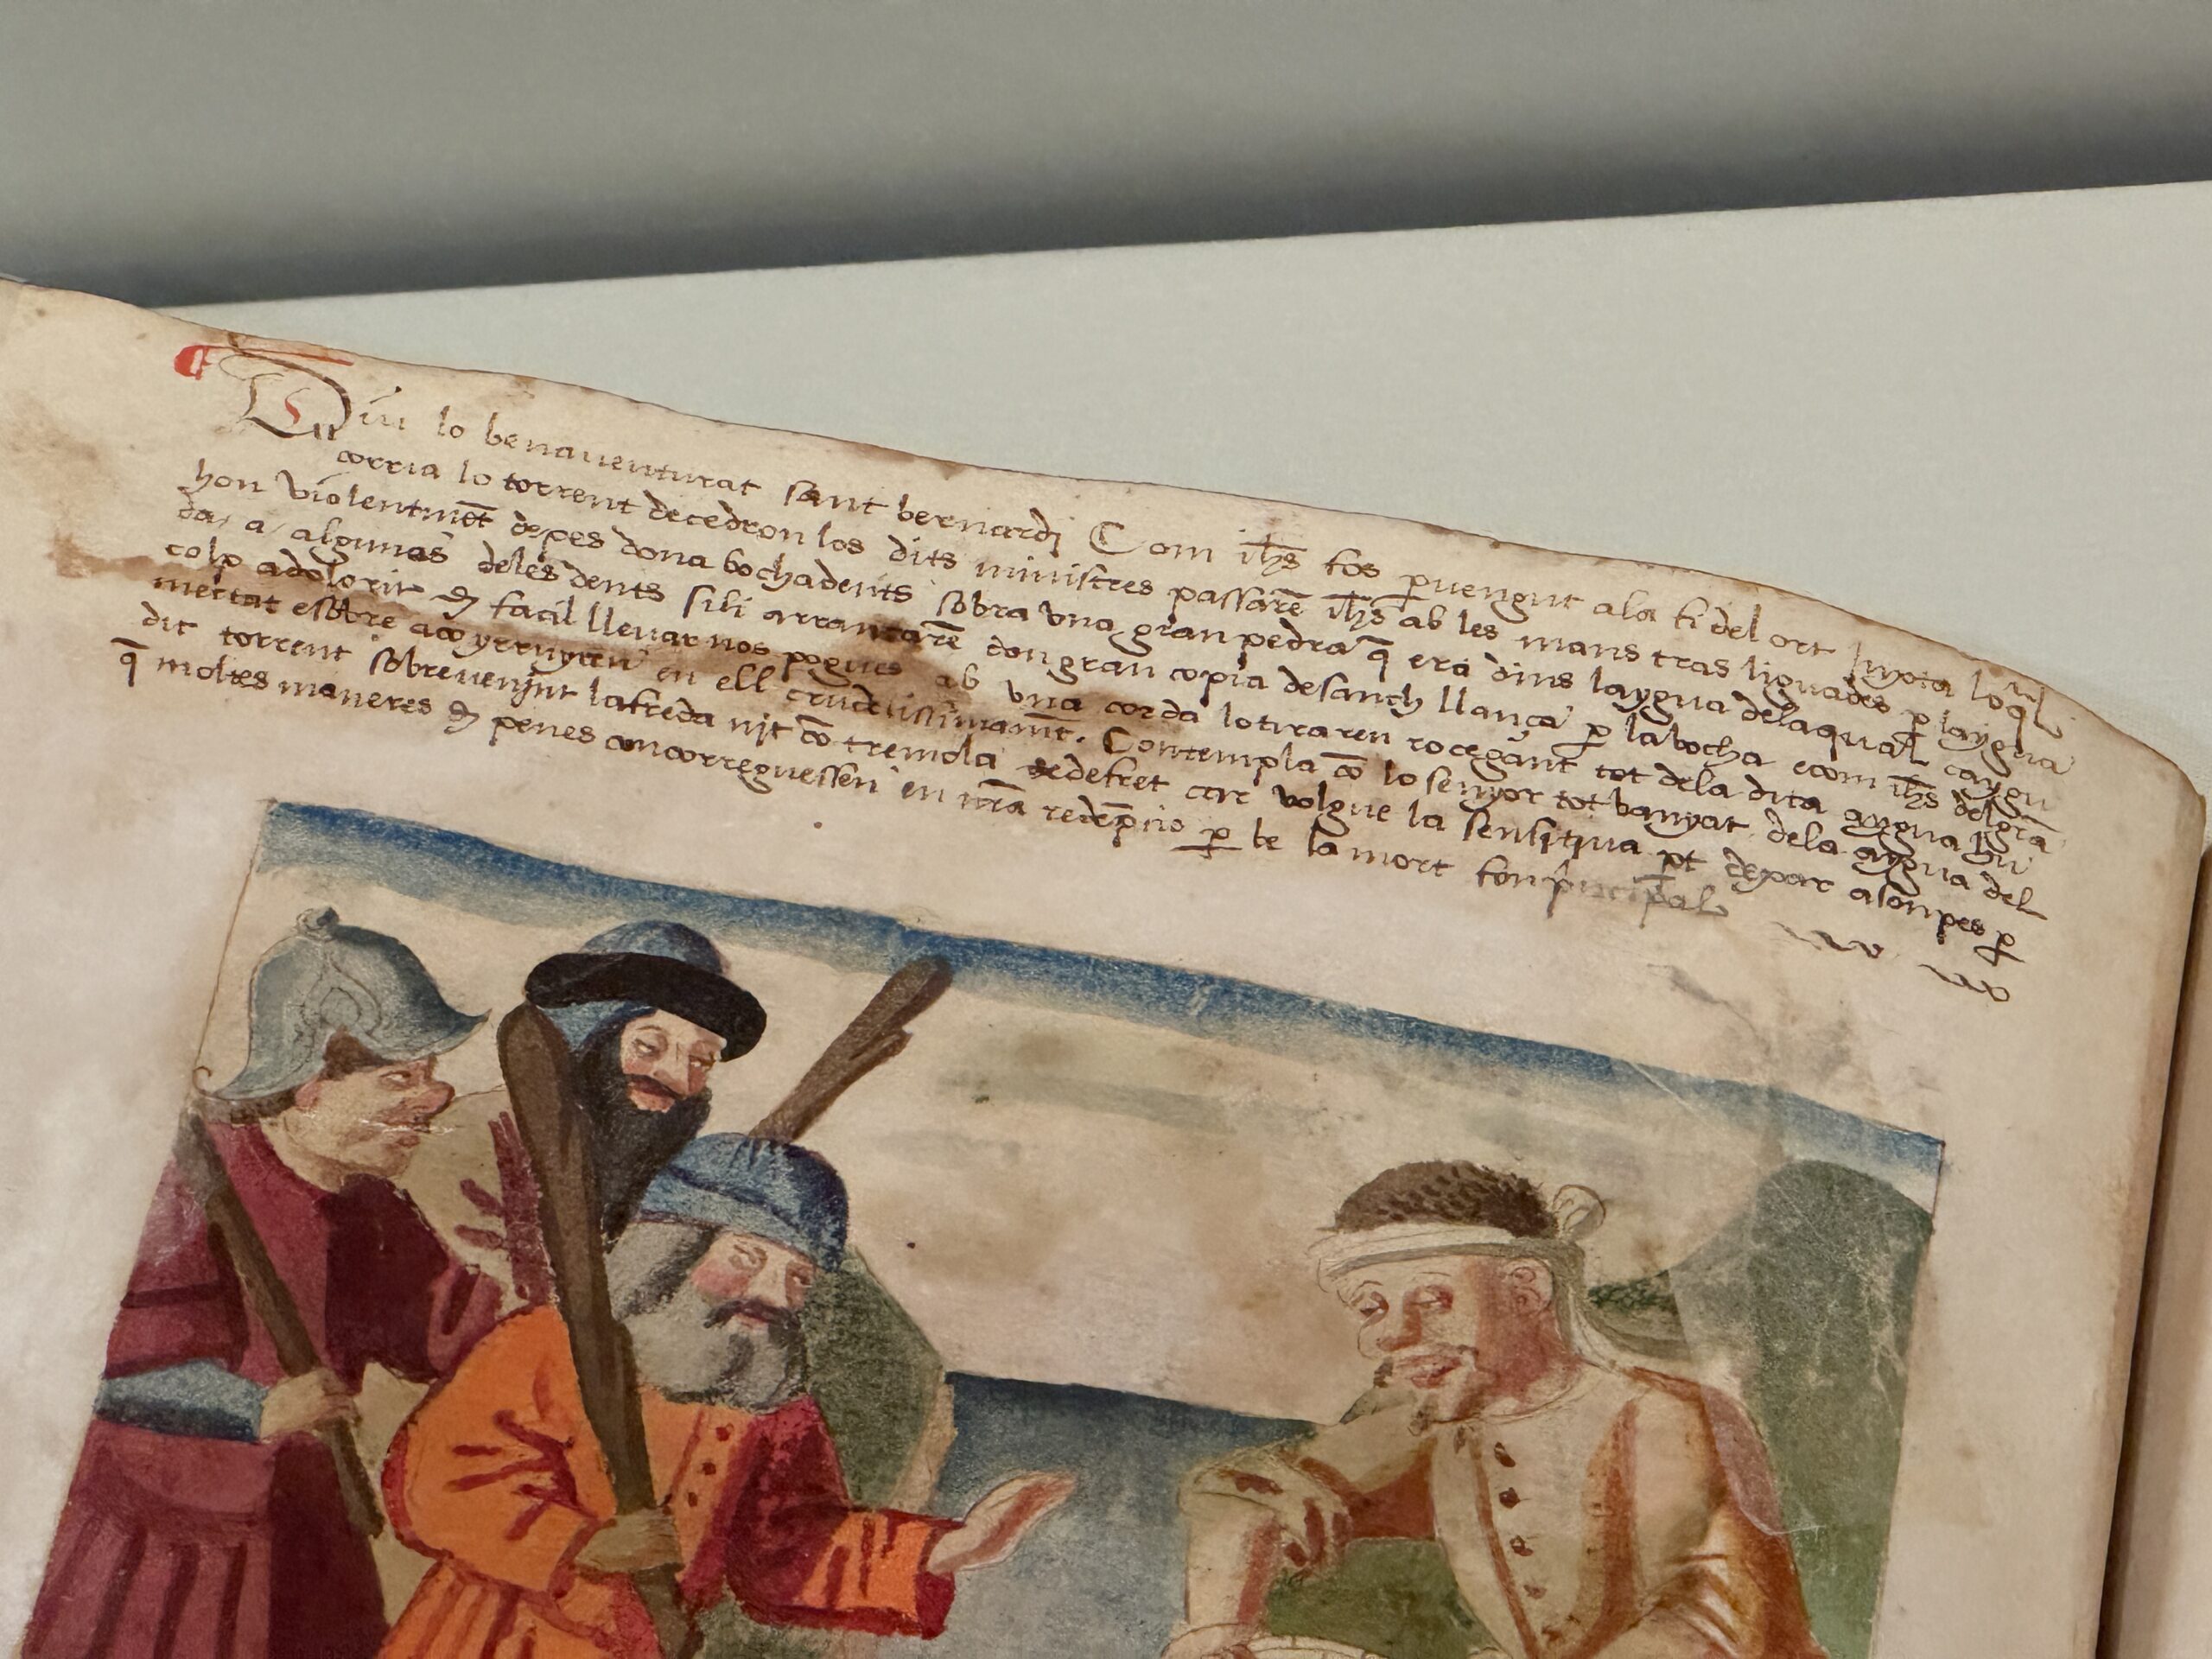 Diu lo benauenturat sant bernardj Com ih̅s fos ꝑuengut ala fi del ort Juxta lo q̅l
corria lo torrent decedron los dits ministres passare̅ ih̅s ab les mans tras liguades ꝑ laygua
hon violentme̅t depes dona bochadents sobra vna gran pedra q̅ era dins laygua dela qual caygu
da a algunas deles dents sili arrancare̅ don gran copia desanch llança ꝑ la bocha ecom ih̅s delgra̅
colp adolorit facil lleuar nos pogues ab vna corda lo tiraren rocegant tot dela dita aygua
mertat esobre aço en ell crudelissimame̅t. Contempla co̅ lo senyor tot banyat dela aygua del
dit torrent sobreuenjnt la freda njt co̅ tremola defret car volgue la sensitiua pt dexar alonpes ꝑ
q̅ moltes maneres penes concorreguessen en nr̅a rede̅pcio ꝑ be la mort fon principal